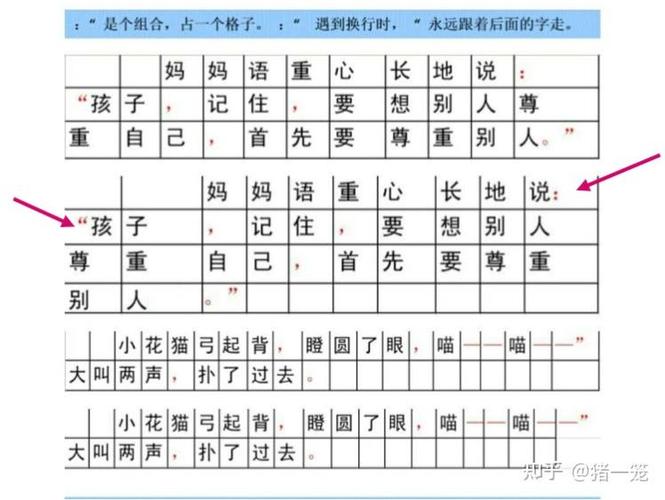 ：“ 是个组合，占一个格子。：“ 遇到换行时，“ 永远跟着后面的字走。
妈妈语重心长地说：
“孩子，记住，要想别人尊
重自己，首先要尊重别人。”
妈妈语重心长地说：
“孩子，记住，要想别人
尊重自己，首先要尊重
别人。”
小花猫弓起背，瞪圆了眼，喵——喵——”
大叫两声，扑了过去。
小花猫弓起背，瞪圆了眼，喵——喵——”
大叫两声，扑了过去。
知乎 @猪一笼